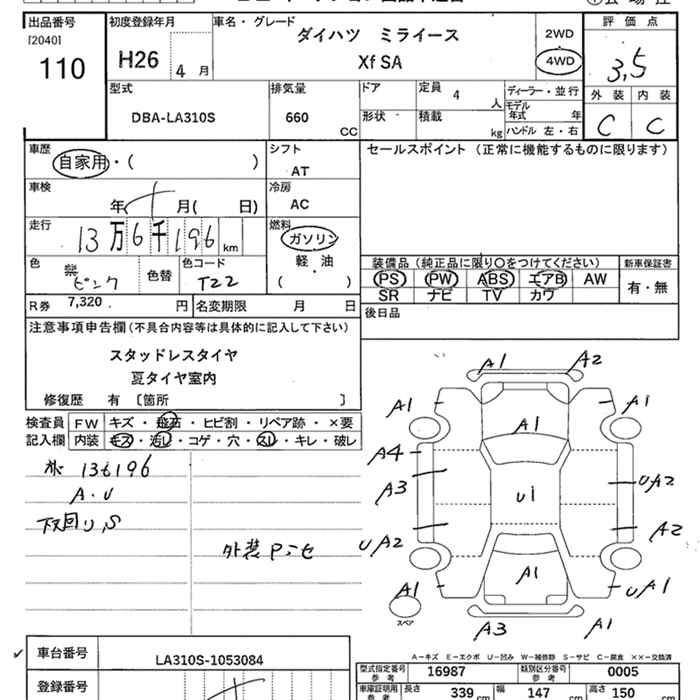 出品番号
[2040]
110
初度登録年月
H26 4 月
車名・グレード
ダイハツ ミライース
Xf SA
2WD
4WD
評価点
3,5
外装 内装
C C
型式
DBA-LA310S
排気量
660 CC
ドア
形状
定員 4 人
積載 kg
ディーラー・並行
モデル年式 年
ハンドル 左・右
車歴
自家用・( )
シフト
AT
セールスポイント (正常に機能するものに限ります)
車検
年 月( 日)
冷房
AC
走行
13万6千196 km
燃料
ガソリン
軽・油
( )
色
ピンク
色替
色コード
T22
装備品(純正品に限り○をつけてください)
PS PW ABS エアB AW
SR ナビ TV カワ
新車保証書
有・無
R券 7,320 円
名変期限 月 日
後日品
注意事項申告欄(不具合内容等は具体的に記入して下さい)
スタッドレスタイヤ
夏タイヤ室内
修復歴 有 〔箇所 〕
検査員
記入欄
FW キズ・飛石・ヒビ割・リペア跡・×要
内装 キズ・汚レ・コゲ・穴・スレ・キレ・破レ
136196
A・U
下回り,S
外装 P.セ
A1 A2
A1 A1 A1
A4
A3
U1
UA2
UA2
A2
A1
A1
UA1
スペア
A3 A1
A-キズ E-エクボ U-凹み W-補修跡 S-サビ C-腐食 ××-交換済
車台番号
LA310S-1053084
登録番号
型式指定番号
参考
16987
類別区分番号
参考
0005
車庫証明用
参考
長さ 339 cm
幅 147 cm
高さ 150 cm